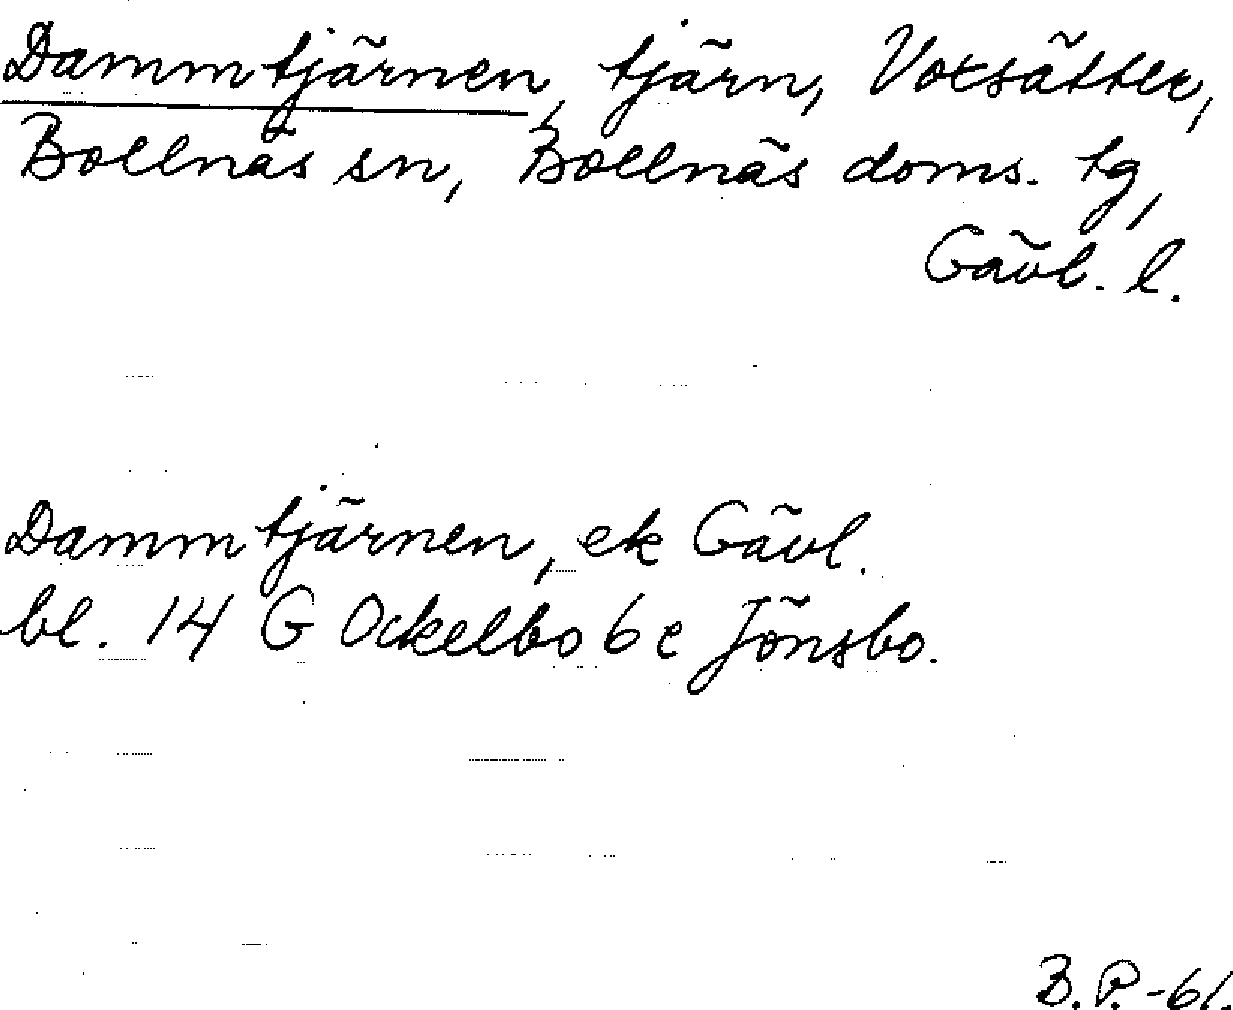 Dammtjärnen, tjärn, Voxsätter,
Bollnäs sn, Bollnäs doms. tg,
Gävl. l.
Dammtjärnen, ek Gävl.
bl. 14 G Ockelbo 6 e Jönsbo.
B.P.-61.